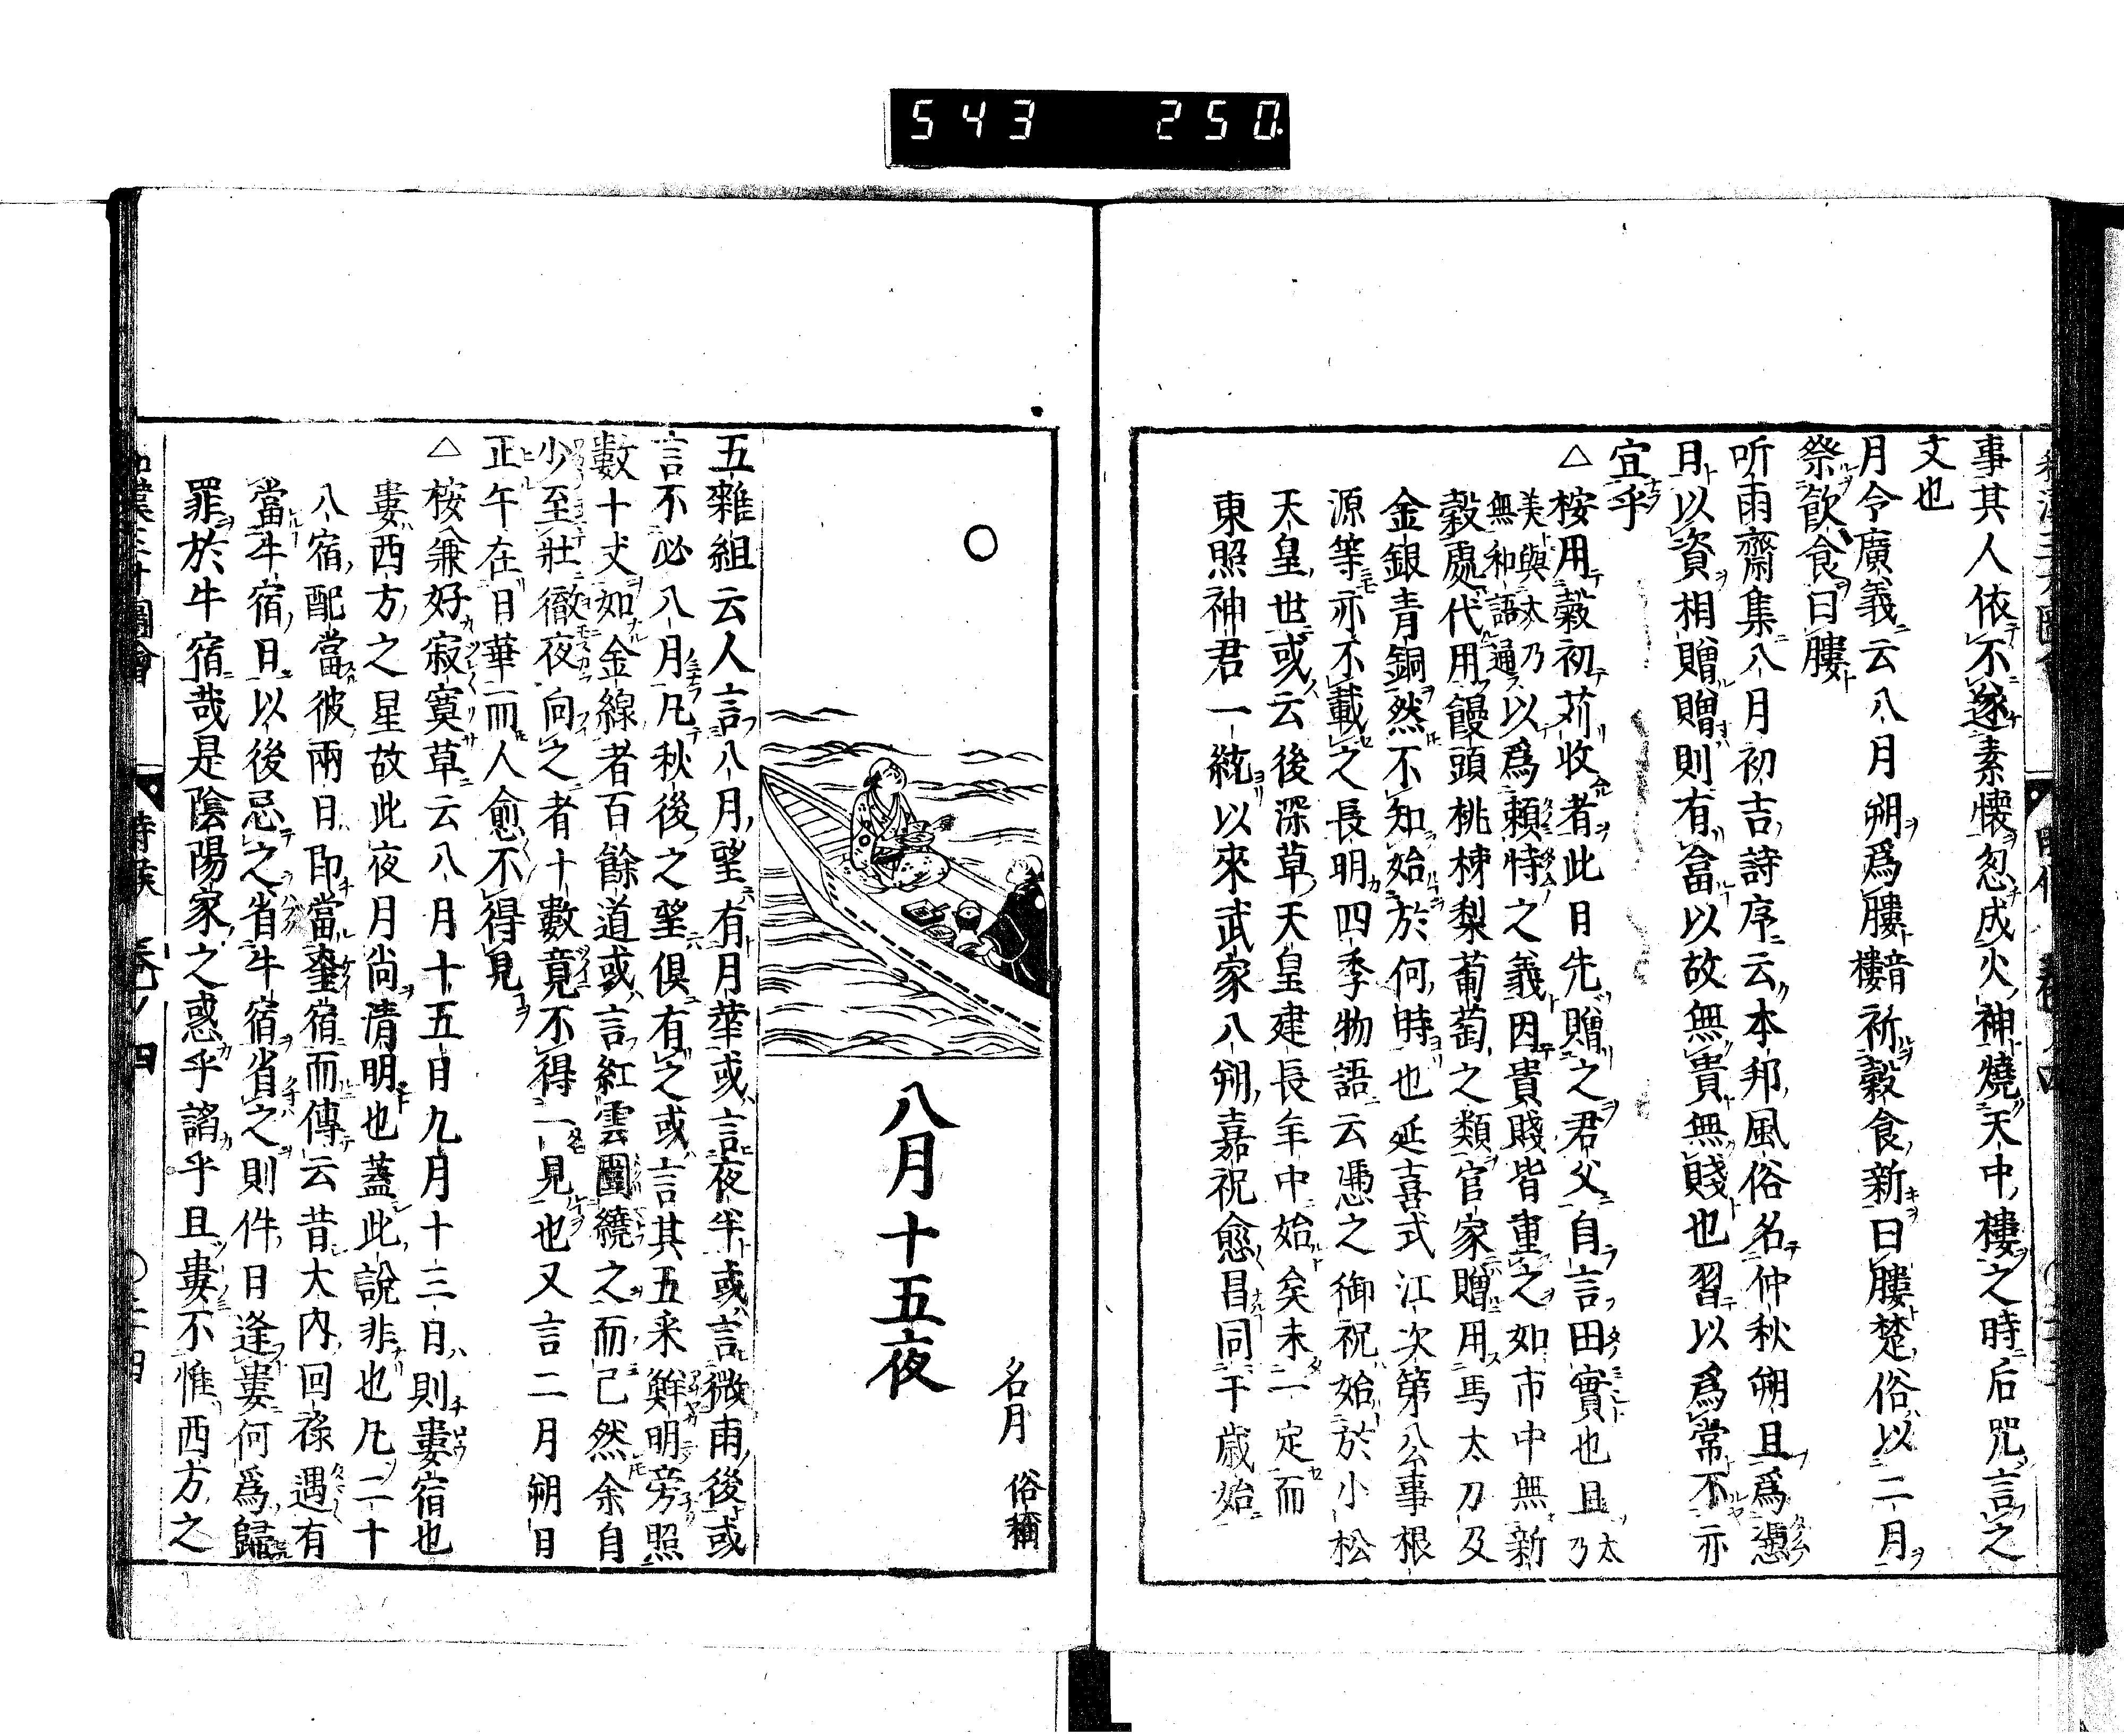 543 250
事其人依不遂素懷忽成火神燒天中樓之時后咒言之
文也
月令廣義云八月朔爲膢音樓祈穀食新曰膢楚俗以二月
祭飮食曰膢
听雨齋集八月初吉詩序云本邦風俗名仲秋朔且爲憑
日以資相贈贈則有畣以故無貴無賤也習以爲常不亦
宜乎
△桉用穀初苅收者此日先贈之君父自言田實也且乃太
美與太乃以爲賴恃之義因貴賤皆重之如市中無新
無和語通
穀處代用饅頭桃梼梨葡萄之類官家贈用馬太刀及
金銀青銅然不知始於何時也延喜式江次第公事根
源等亦不載之長明四季物語云憑之御祝始於小松
天皇世或云後深草天皇建長年中始矣未一定而
東照神君一統以來武家八朔嘉祝愈昌同于歳始
八月十五夜
名月 俗稱
五雜組云人言八月望有月華或言夜半或言微雨後或
言不必八月凡秋後之望俱有之或言其五采鮮明旁照
數十丈如金線者百餘道或言紅雲圍繞之而已然余自
少至壯徹夜向之者十數竟不得一見也又言二月朔日
正午在日華而人愈不得見
△桉兼好寂寞草云八月十五日九月十三日則婁宿也
婁西方之星故此夜月尚清明也蓋此說非也凡二十
八宿配當彼兩日卽當奎宿而傳云昔大內回祿遇有
當牛宿日以後忌之省牛宿省之則件日逢婁何爲歸
罪於牛宿哉是陰陽家之惑乎謟乎且婁不惟西方之
和漢三才圖會 時候 卷ノ四 〇三十四